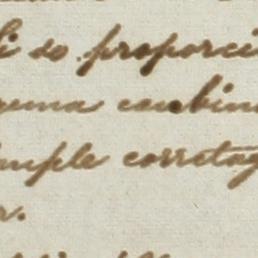 li do proporci
guma combin
imple corretag
r.